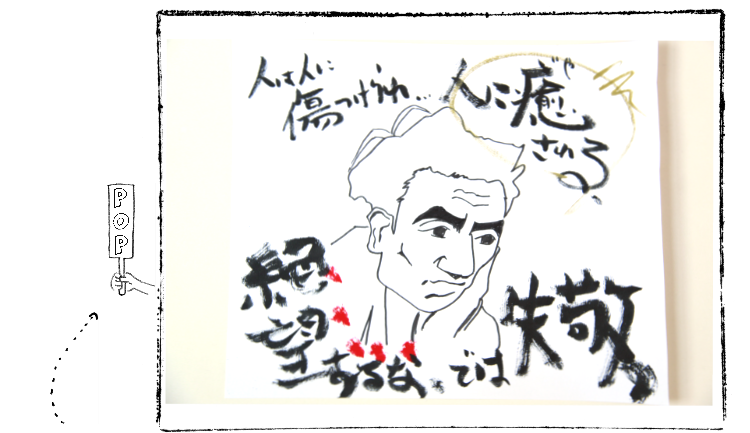 人は人に
傷つけられ…
人に癒
される。
絶
望
するな。では
失敬。
POP